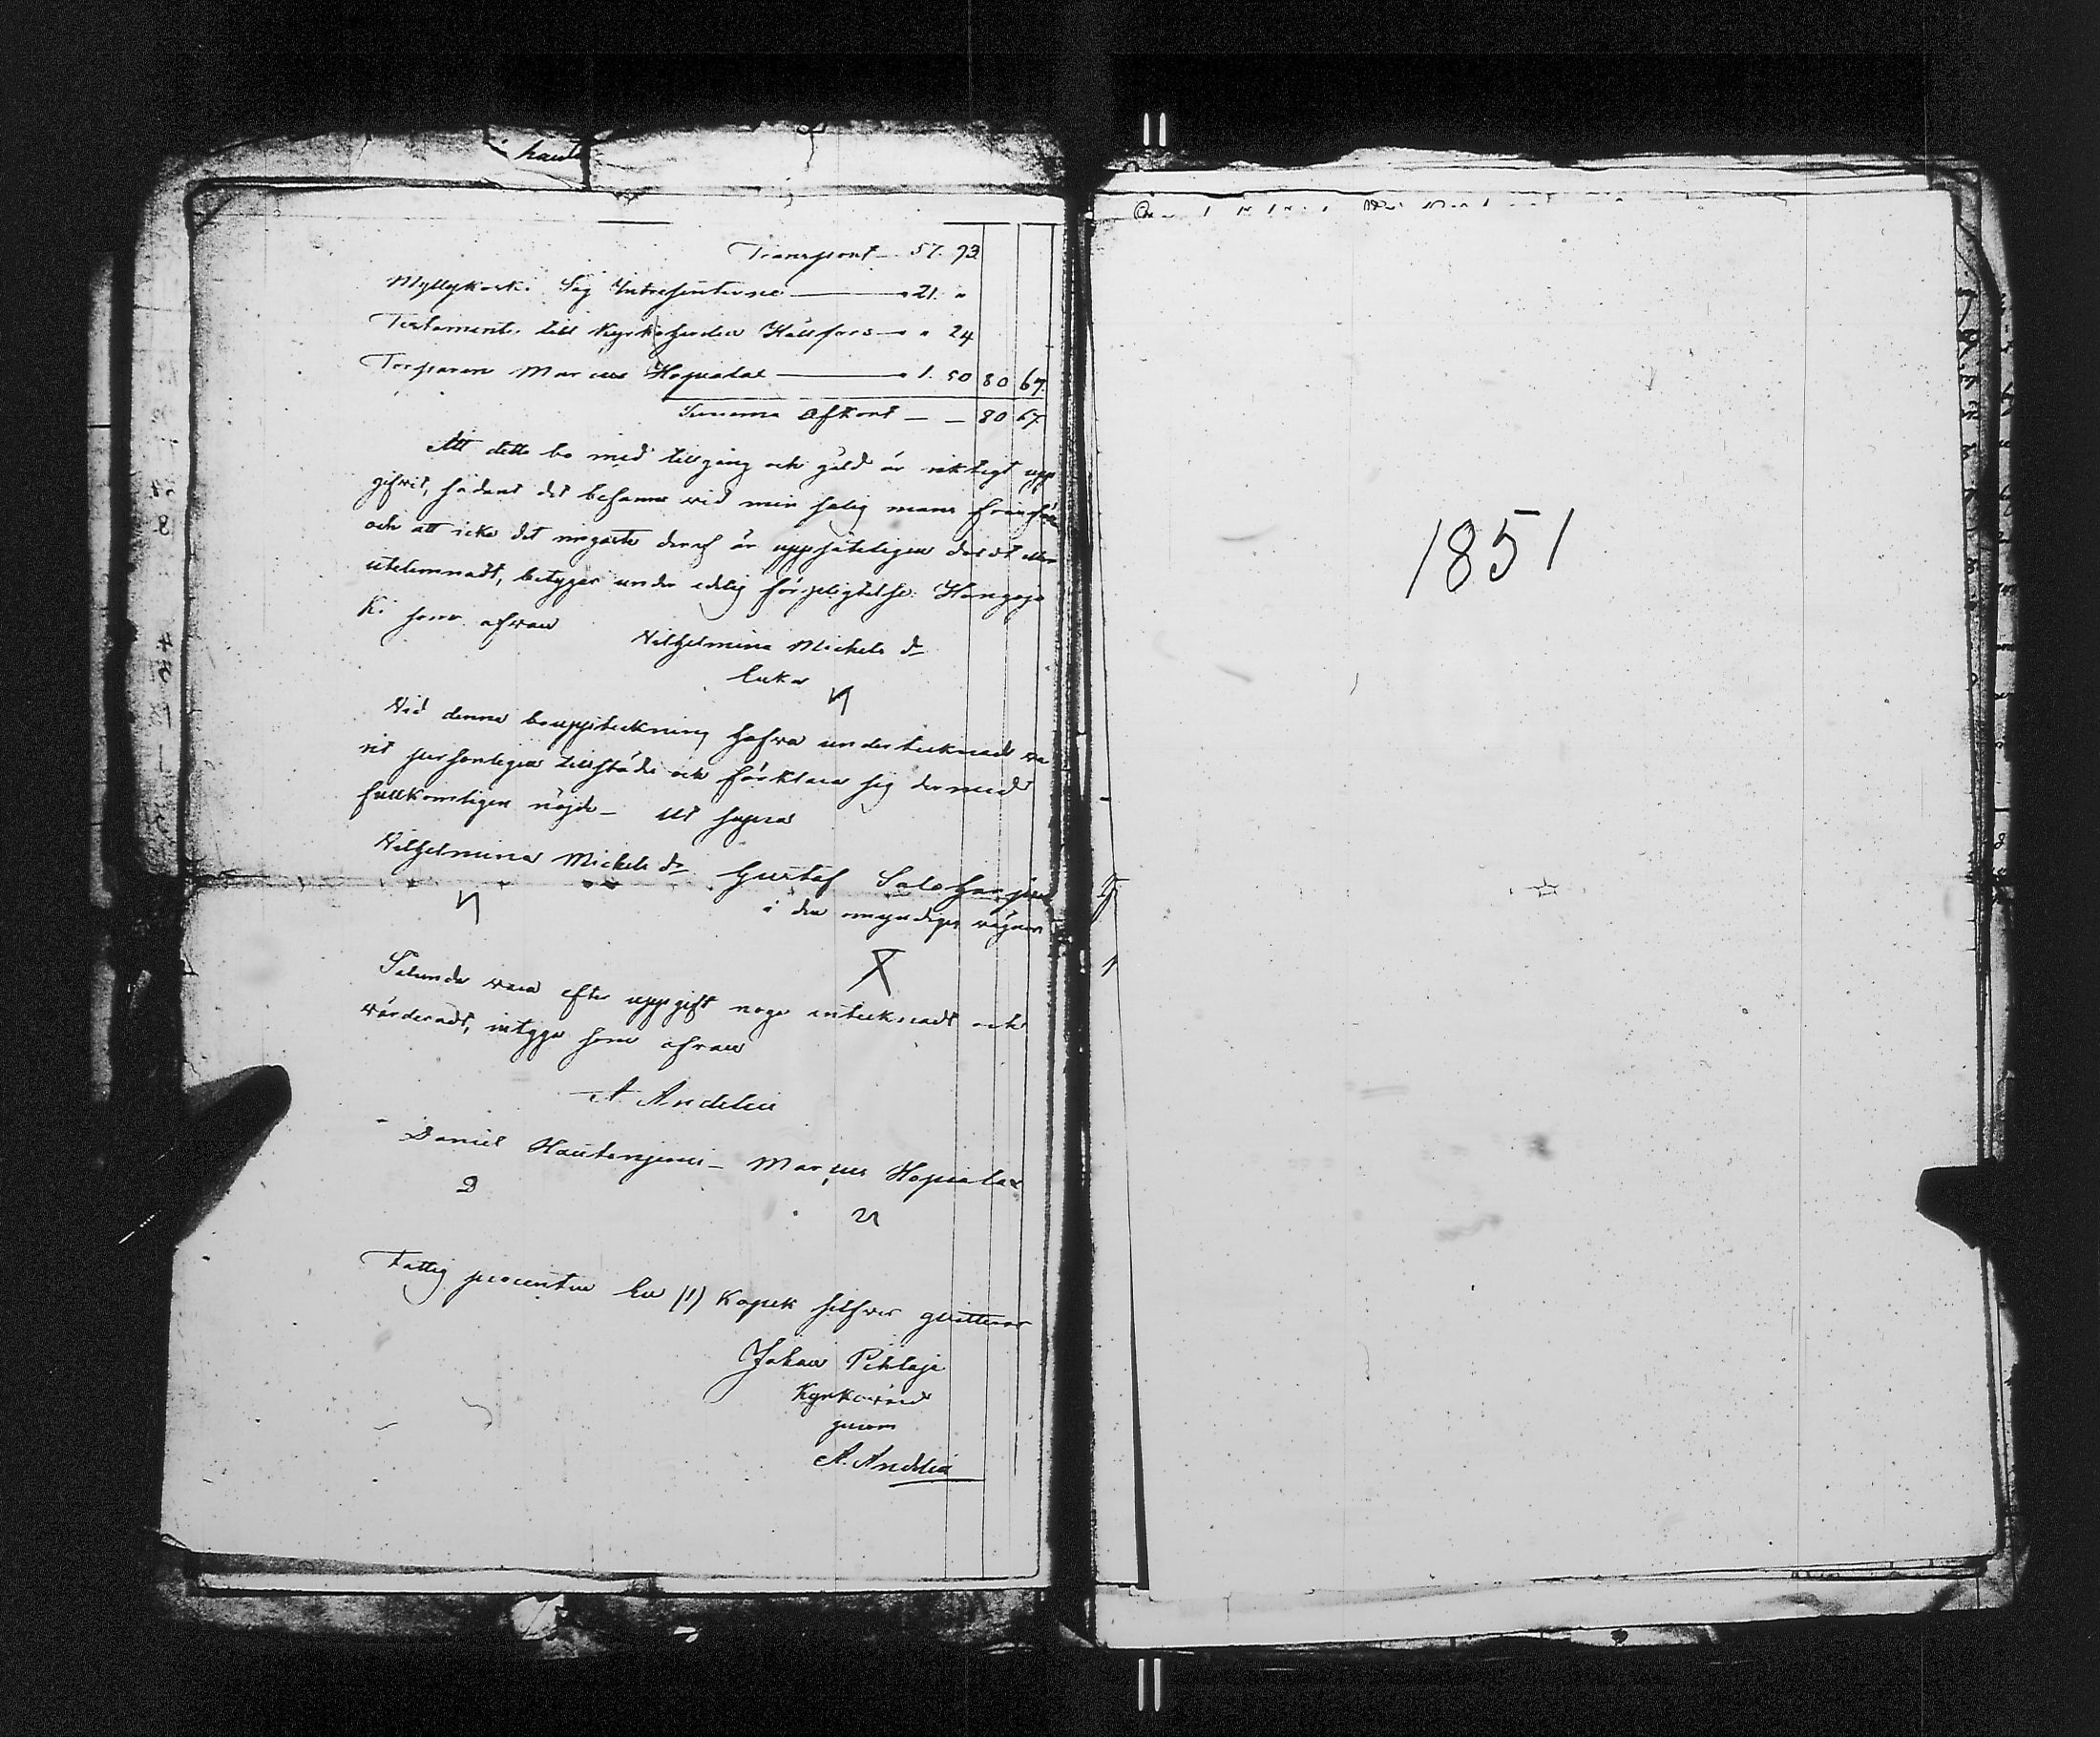 Transport — 57. 93
Myllykoski Såg Intressenterne — " 21. "
Testamente till Kyrkoherden Hällfors — " 24
Torparen Marcus Hopialax — " 1. 50 80 67
Summa Afkort — — 80 67
Att detta bo med tillgång och gäld är riktigt upp
gifvit, sådant det befanns wid min salig mans frånfälle
och att icke det ringaste deraf är uppsåteligen doldt eller
utelemnadt, betygar under edlig förpligtelse.
som ofwan
Wilhelmina Michels dr
Enka
Vid denna bouppteckning hafwa undertecknade wa
rit personligen tillstädes och förklara sig dermed
fullkomligen nöjde — Ut supra
Wilhelmina Michels dr Gustaf Saloharju
i de omyndiges wägnar
Sålunda wara efter uppgift noga antecknadt och
wärderadt, intyga som ofwan
A. Andelin
Daniel Hautenjemi — Marcus Hopialax
Fattig procenten En (1) Kopek silfwer qvitteras
Johan Pihlaja
Kyrkowärd
genom
A. Andelin
1851